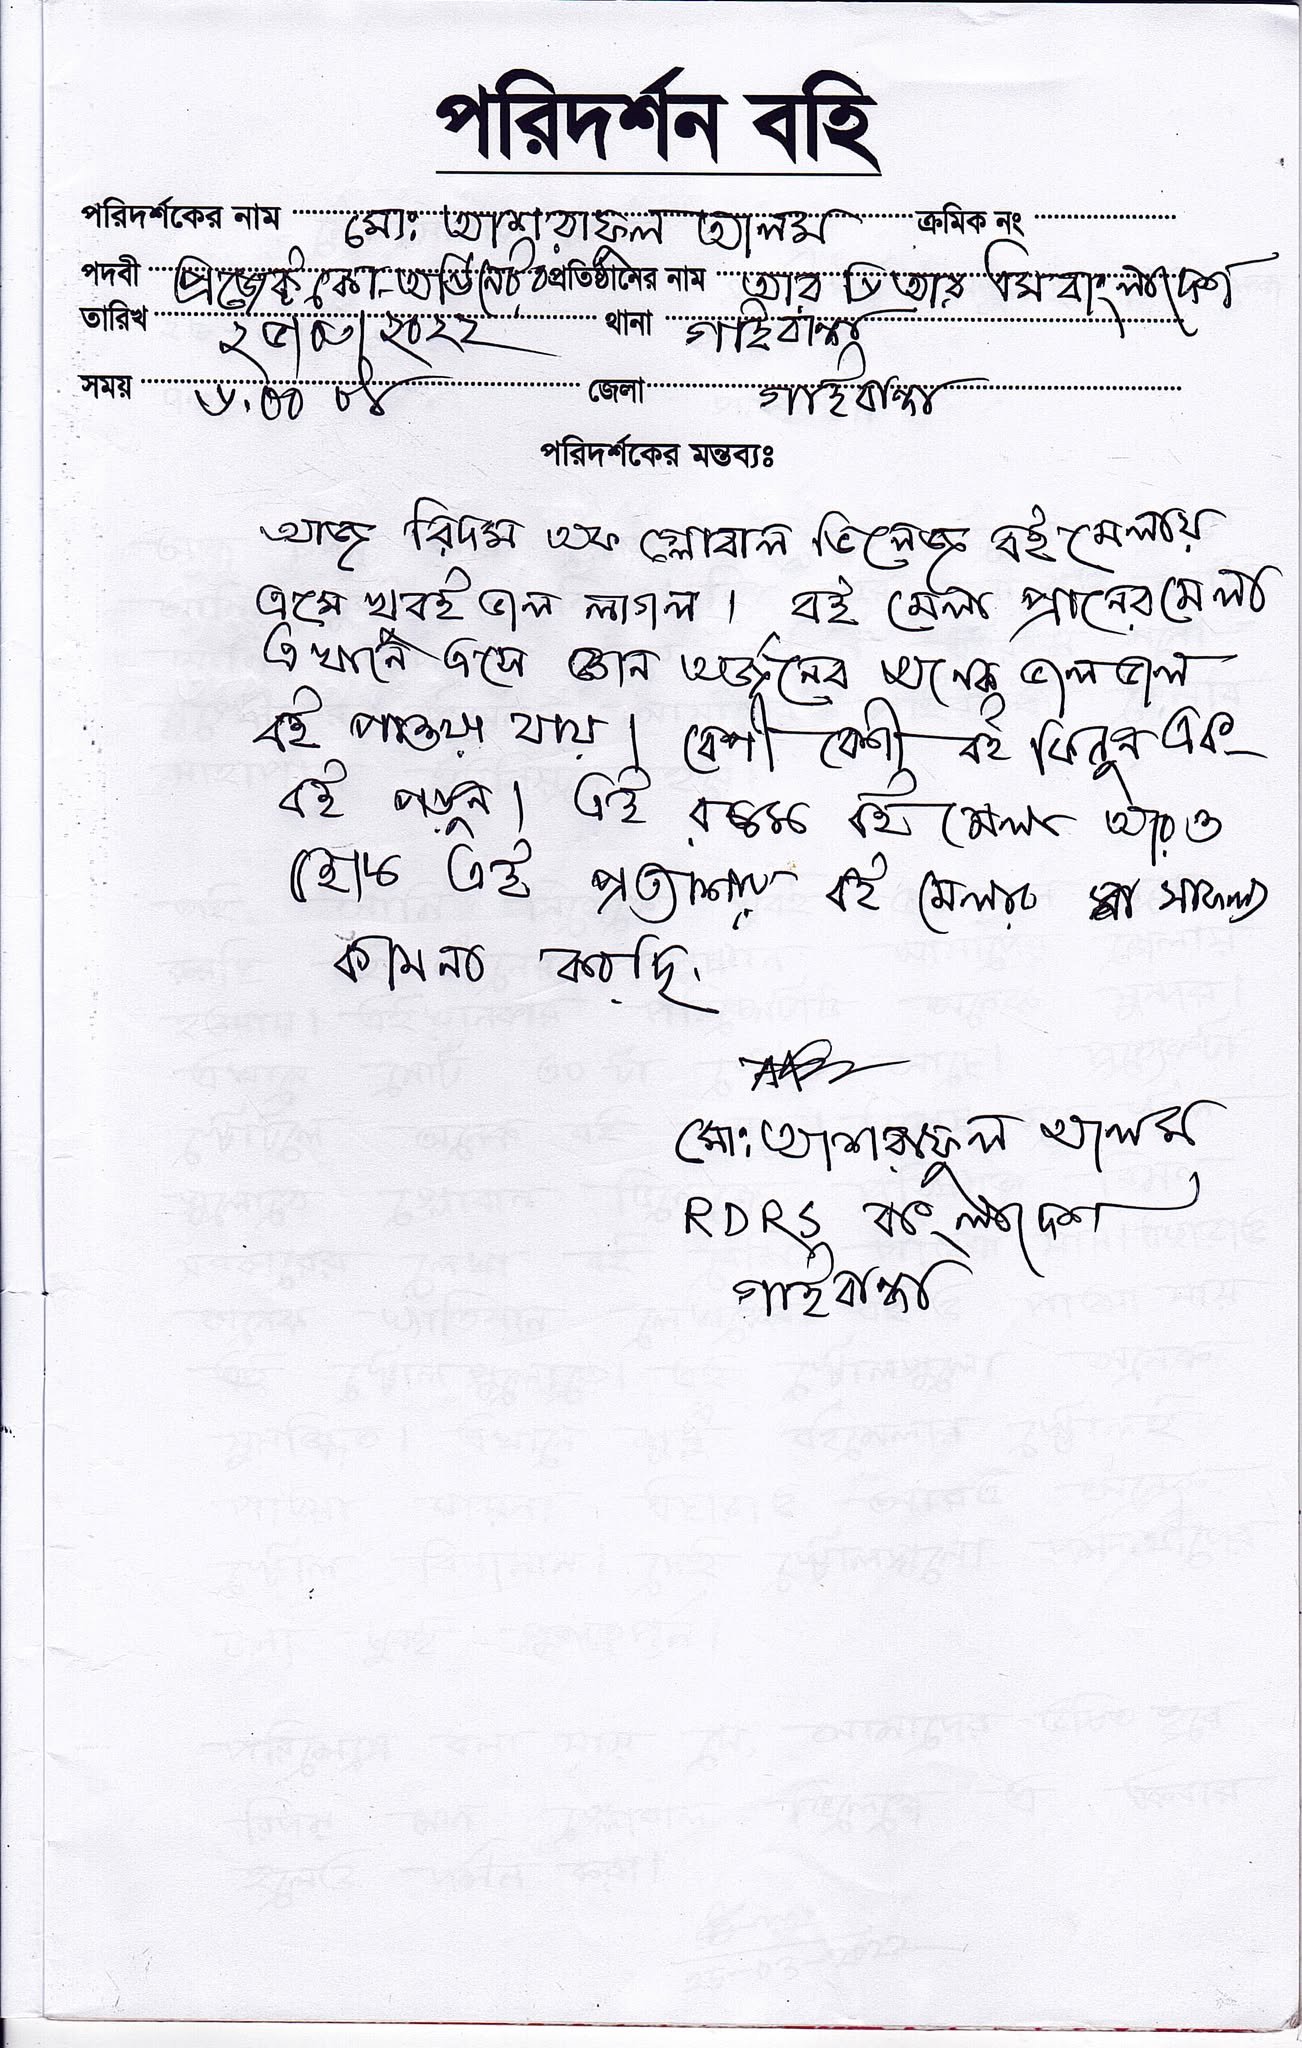 পরিদর্শন বহি
পরিদর্শকের নাম মোঃ আশরাফুল আলম ক্রমিক নং
পদবী প্রজেক্ট কো-অর্ডিনেটর প্রতিষ্ঠানের নাম আর ডি আর এস বাংলাদেশ
তারিখ ২৭/০৩/২০২২ থানা গাইবান্ধা
সময় জেলা গাইবান্ধা
পরিদর্শকের মন্তব্যঃ
আজ রিদম অফ গ্লোবাল ভিলেজ বই মেলায়
এসে খুবই ভাল লাগল। বই মেলা প্রানের মেলা
এখানে এসে জ্ঞান অর্জনের অনেক ভাল ভাল
বই পাওয়া যায়। বেশী বেশী বই কিনুন এবং
বই পড়ুন। এই রকম বই মেলা আরও
হোক এই প্রত্যাশায় বই মেলার সাফল্য
কামনা করছি.
মোঃ আশরাফুল আলম
RDRS বাংলাদেশ
গাইবান্ধা